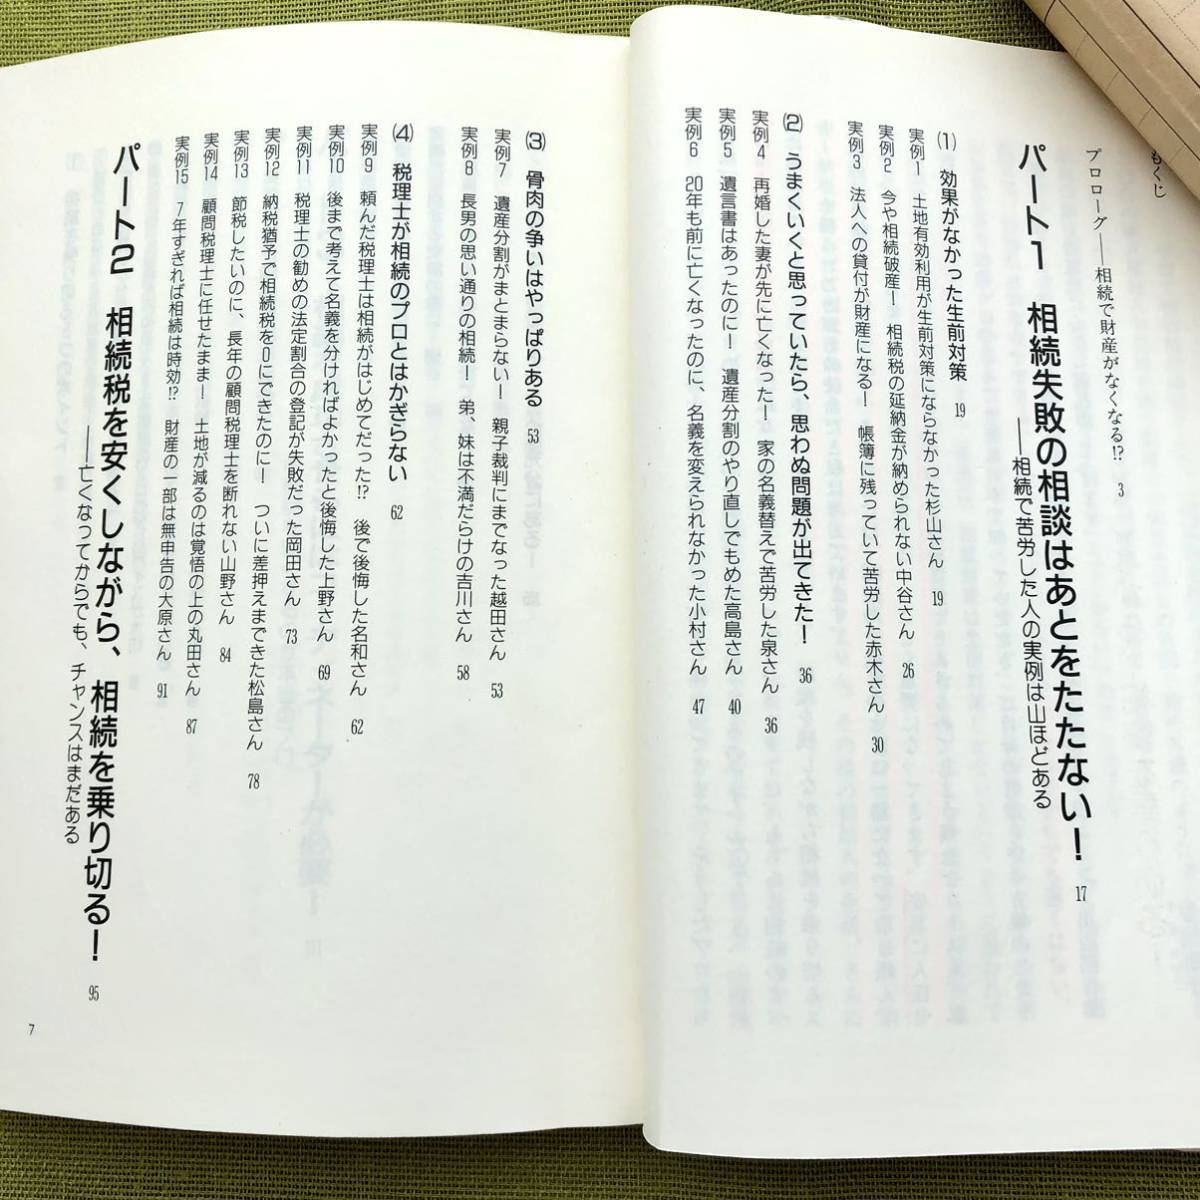 もくじ
プロローグ――相続で財産がなくなる!? 3
パート1 相続失敗の相談はあとをたたない! 17
――相続で苦労した人の実例は山ほどある
(1) 効果がなかった生前対策 19
実例1 土地有効利用が生前対策にならなかった杉山さん 19
実例2 今や相続破産! 相続税の延納金が納められない中谷さん 26
実例3 法人への貸付が財産になる! 帳簿に残っていて苦労した赤木さん 30
(2) うまくいくと思っていたら、思わぬ問題が出てきた! 36
実例4 再婚した妻が先に亡くなった! 家の名義替えで苦労した泉さん 36
実例5 遺言書はあったのに! 遺産分割のやり直しでもめた高島さん 40
実例6 20年も前に亡くなったのに、名義を変えられなかった小村さん 47
(3) 骨肉の争いはやっぱりある 53
実例7 遺産分割がまとまらない! 親子裁判にまでなった越田さん 53
実例8 長男の思い通りの相続! 弟、妹は不満だらけの吉川さん 58
(4) 税理士が相続のプロとはかぎらない 62
実例9 頼んだ税理士は相続がはじめてだった!? 後で後悔した名和さん 62
実例10 後まで考えて名義を分ければよかったと後悔した上野さん 69
実例11 税理士の勧めの法定割合の登記が失敗だった岡田さん 73
実例12 納税猶予で相続税を0にできたのに! ついに差押えまできた松島さん 78
実例13 節税したいのに、長年の顧問税理士を断れない山野さん 84
実例14 顧問税理士に任せたまま! 土地が減るのは覚悟の上の丸田さん 87
実例15 7年すぎれば相続は時効!? 財産の一部は無申告の大原さん 91
パート2 相続税を安くしながら、相続を乗り切る! 95
――亡くなってからでも、チャンスはまだある
7